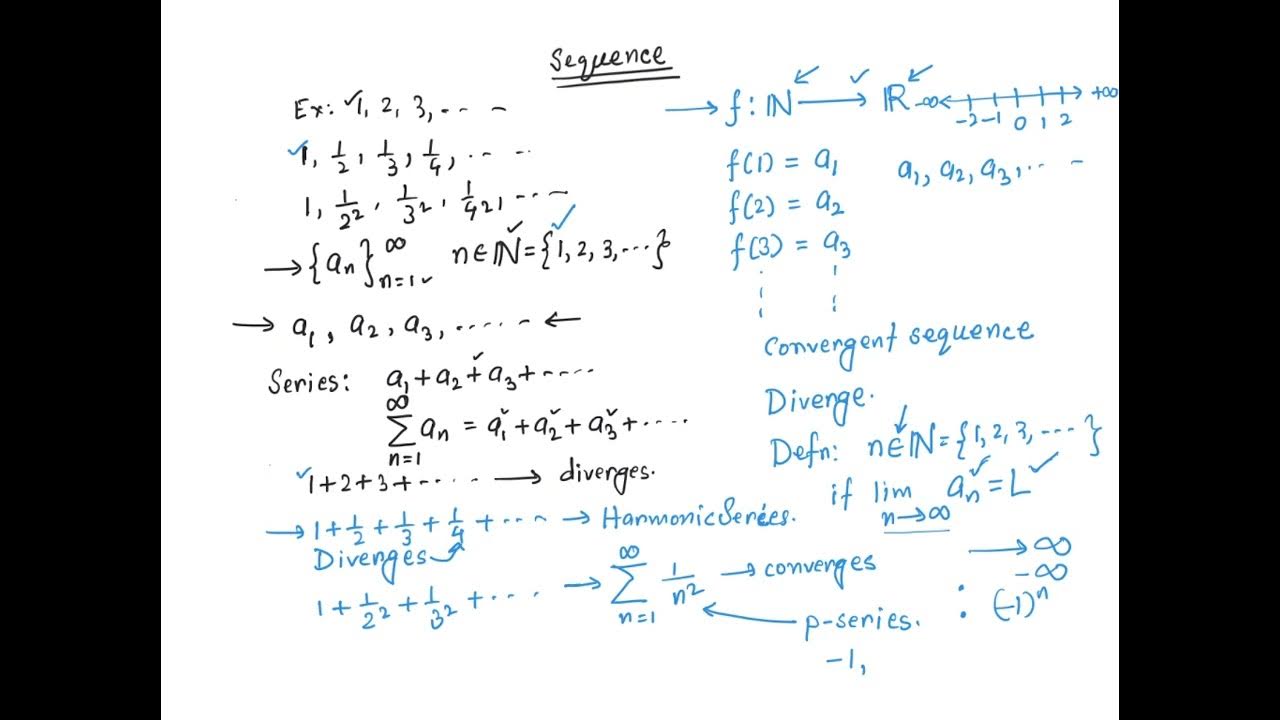 Sequence
Ex: ✓1, 2, 3, .... -
✓1, 1/2, 1/3, 1/4, .... -
1, 1/2², 1/3², 1/4², .... -
→ {aₙ}ₙ₌₁^∞ n ∈ ℕ = {1, 2, 3, ....}
→ a₁, a₂, a₃, ...... ←
Series: a₁ + a₂ + a₃ + .....
∞
∑ aₙ = a₁ + a₂ + a₃ + .....
n=1
✓1+2+3+ ..... → diverges.
→ 1 + 1/2 + 1/3 + 1/4 + .... → Harmonic Series.
Diverges
1 + 1/2² + 1/3² + .... → ∑ₙ₌₁^∞ 1/n² → converges
p-series.
-1,
→ f : ℕ → ℝ -∞ +∞
-2 -1 0 1 2
f(1) = a₁ a₁, a₂, a₃, ... -
f(2) = a₂
f(3) = a₃
Convergent sequence
Diverge.
Defn: n ∈ ℕ = {1, 2, 3, ....}
if lim aₙ = L
n→∞
→ ∞
-∞
: (-1)ⁿ